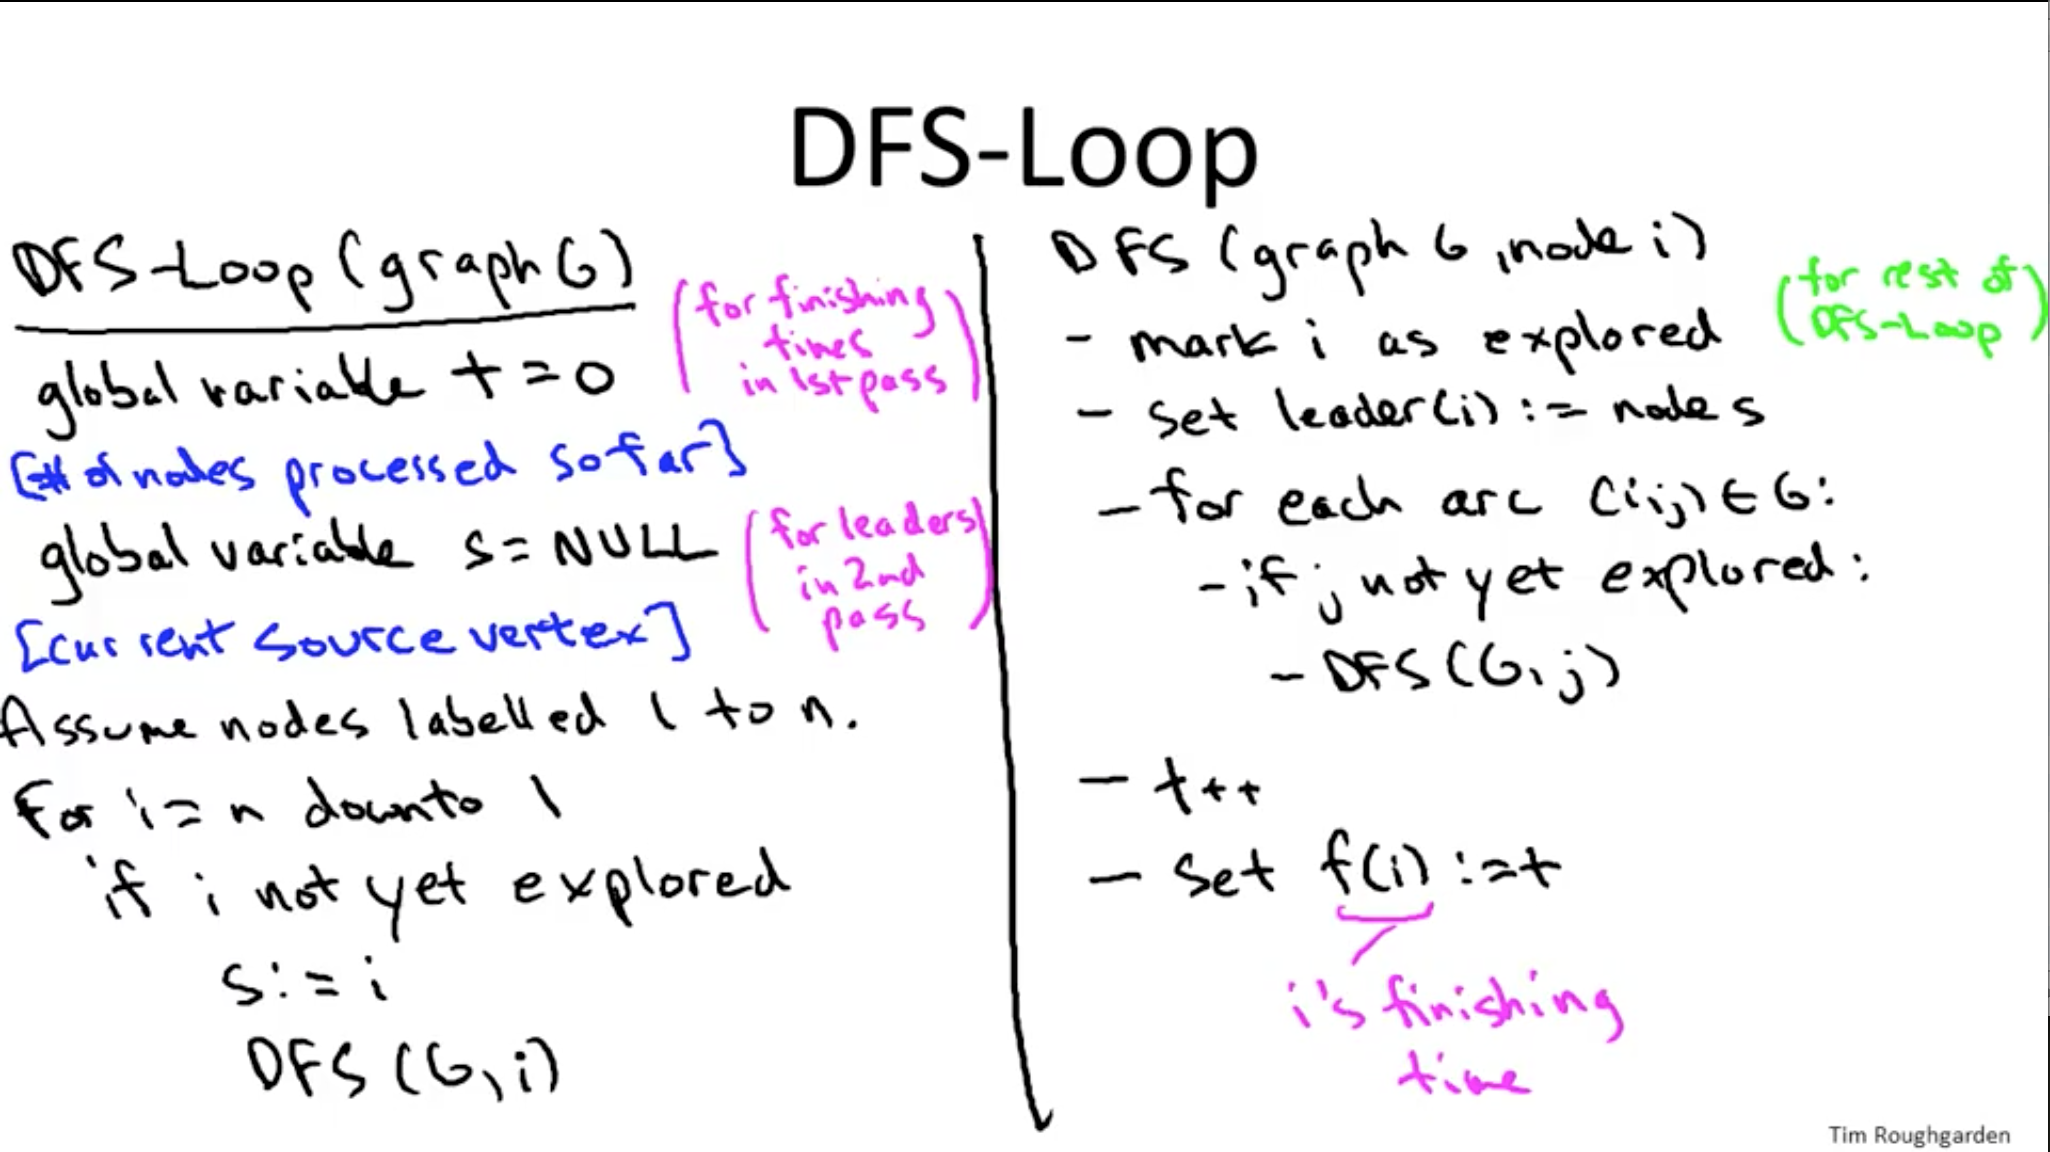 DFS-Loop
DFS-Loop (graph G)
(for finishing
times
in 1st pass)
global variable t = 0
[# of nodes processed so far]
global variable s = NULL
(for leaders
in 2nd
pass)
[current source vertex]
Assume nodes labelled 1 to n.
For i = n downto 1
if i not yet explored
s := i
DFS (G, i)
DFS (graph G, node i)
- mark i as explored
(for rest of
DFS-Loop)
- set leader(i) := node s
- for each arc (i,j) ∈ G:
- if j not yet explored:
- DFS (G, j)
- t++
- set f(i) := t
i's finishing
time
Tim Roughgarden